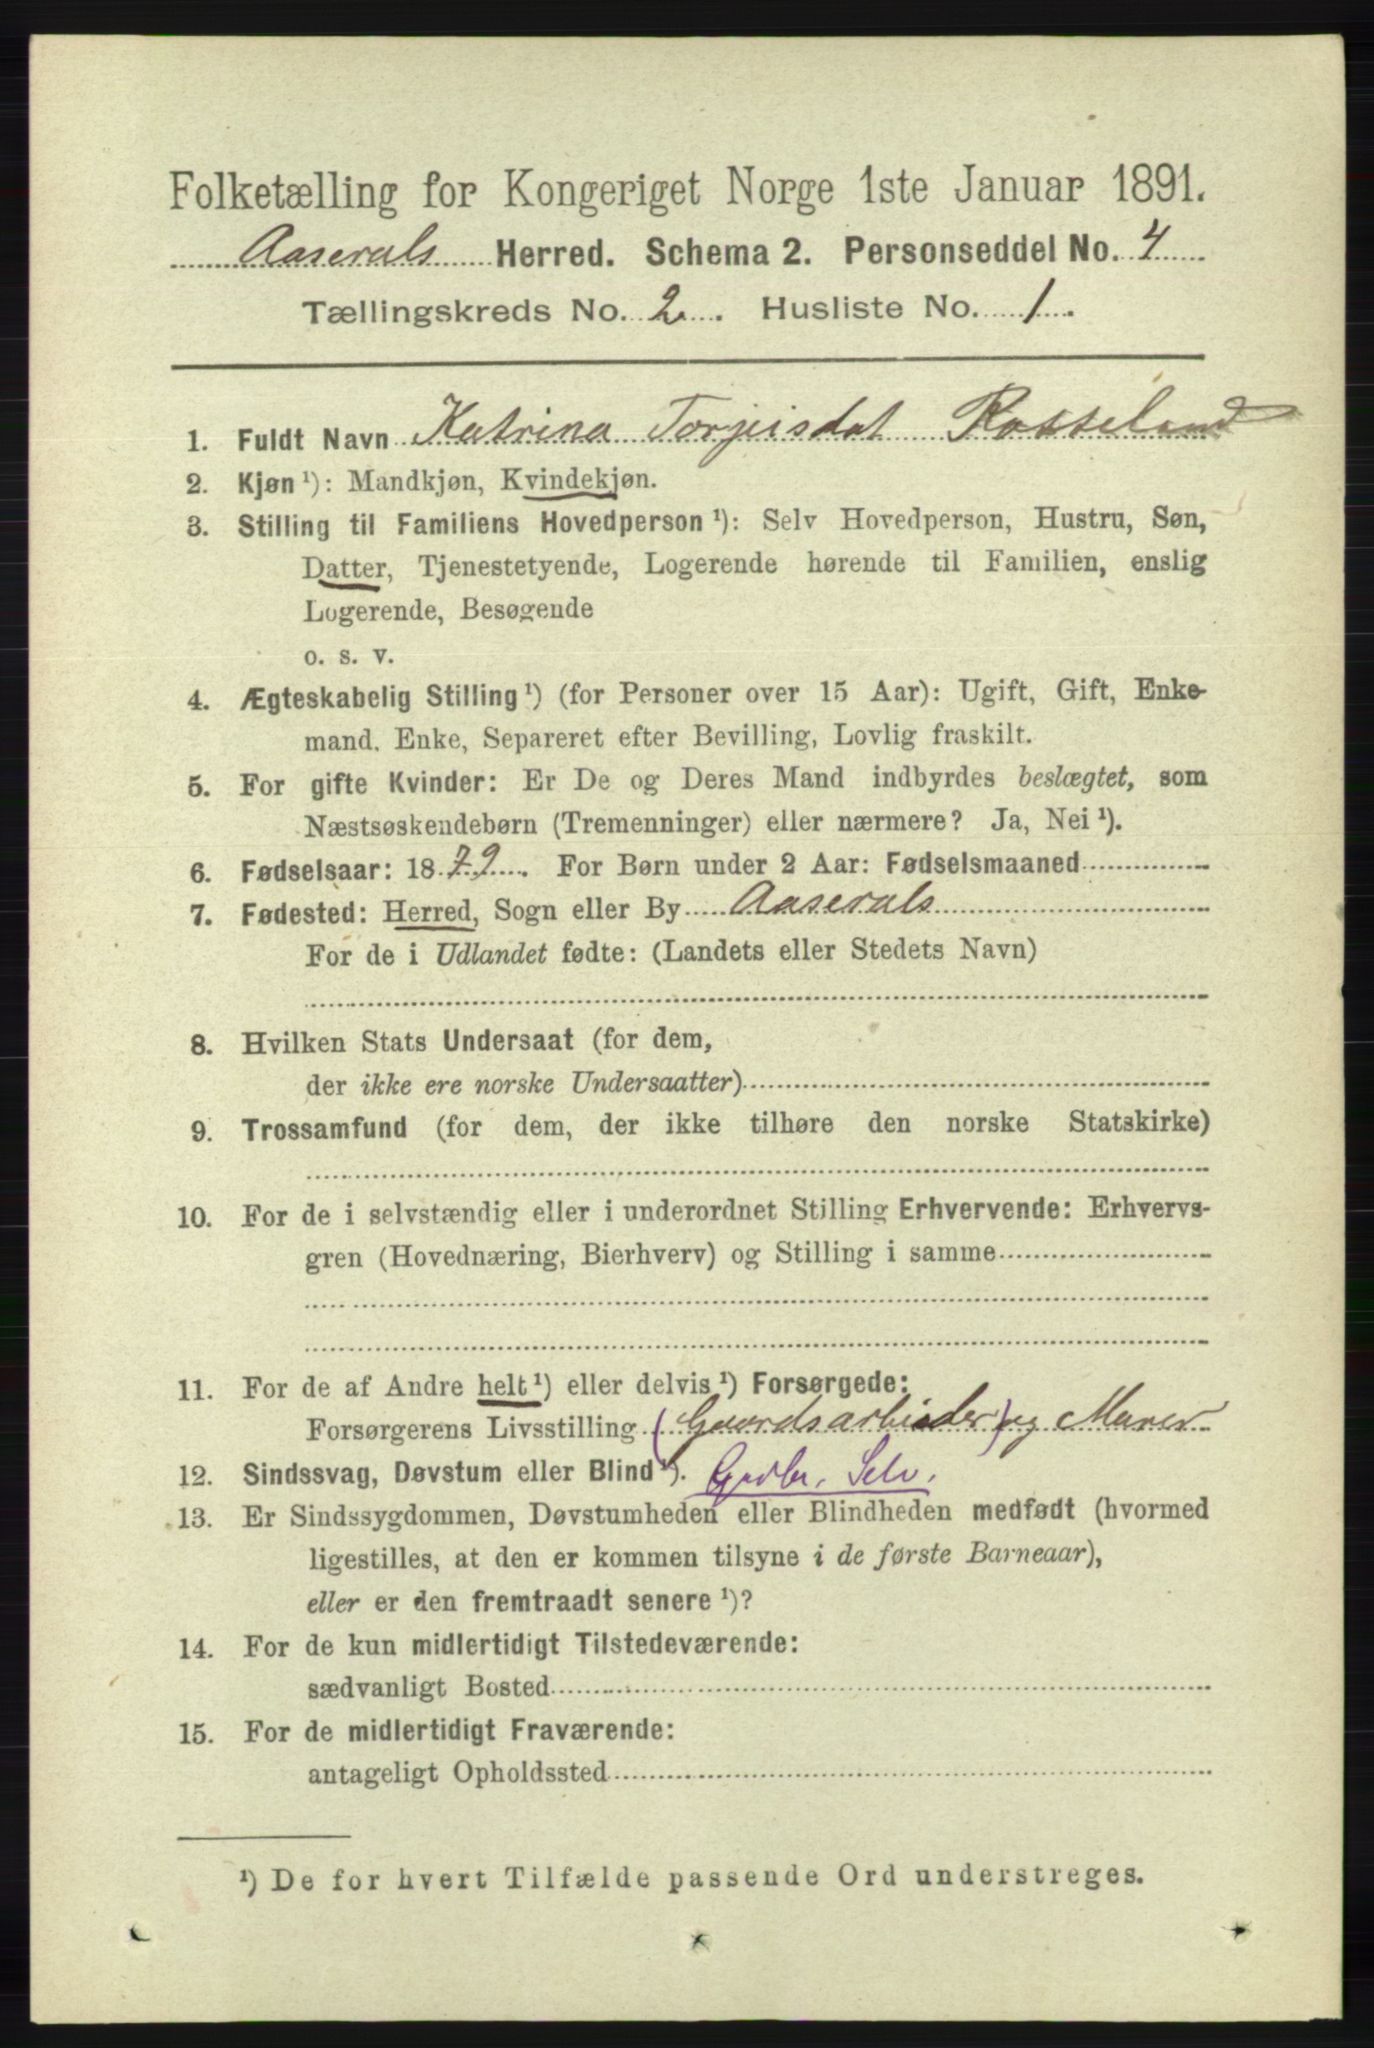 Folketælling for Kongeriget Norge 1ste Januar 1891.
Aaserals Herred. Schema 2. Personseddel No. 4
Tællingskreds No. 2. Husliste No. 1.
1. Fuldt Navn Katrina Torjeisdat Rosseland
2. Kjøn ¹): Mandkjøn, Kvindekjøn.
3. Stilling til Familiens Hovedperson ¹): Selv Hovedperson, Hustru, Søn,
Datter, Tjenestetyende, Logerende hørende til Familien, enslig
Logerende, Besøgende
o. s. v.
4. Ægteskabelig Stilling ¹) (for Personer over 15 Aar): Ugift, Gift, Enke-
mand, Enke, Separeret efter Bevilling, Lovlig fraskilt.
5. For gifte Kvinder: Er De og Deres Mand indbyrdes beslægtet, som
Næstsøskendebørn (Tremenninger) eller nærmere? Ja, Nei ¹).
6. Fødselsaar: 1879. For Børn under 2 Aar: Fødselsmaaned
7. Fødested: Herred, Sogn eller By Aaserals
For de i Udlandet fødte: (Landets eller Stedets Navn)
8. Hvilken Stats Undersaat (for dem,
der ikke ere norske Undersaatter)
9. Trossamfund (for dem, der ikke tilhøre den norske Statskirke)
10. For de i selvstændig eller i underordnet Stilling Erhvervende: Erhvervs-
gren (Hovednæring, Bierhverv) og Stilling i samme
11. For de af Andre helt ¹) eller delvis ¹) Forsørgede:
Forsørgerens Livsstilling (Gaardsarbeider) og Murer
12. Sindssvag, Døvstum eller Blind ¹). Grdbr. Selv.
13. Er Sindssygdommen, Døvstumheden eller Blindheden medfødt (hvormed
ligestilles, at den er kommen tilsyne i de første Barneaar),
eller er den fremtraadt senere ¹)?
14. For de kun midlertidigt Tilstedeværende:
sædvanligt Bosted
15. For de midlertidigt Fraværende:
antageligt Opholdssted
¹) De for hvert Tilfælde passende Ord understreges.